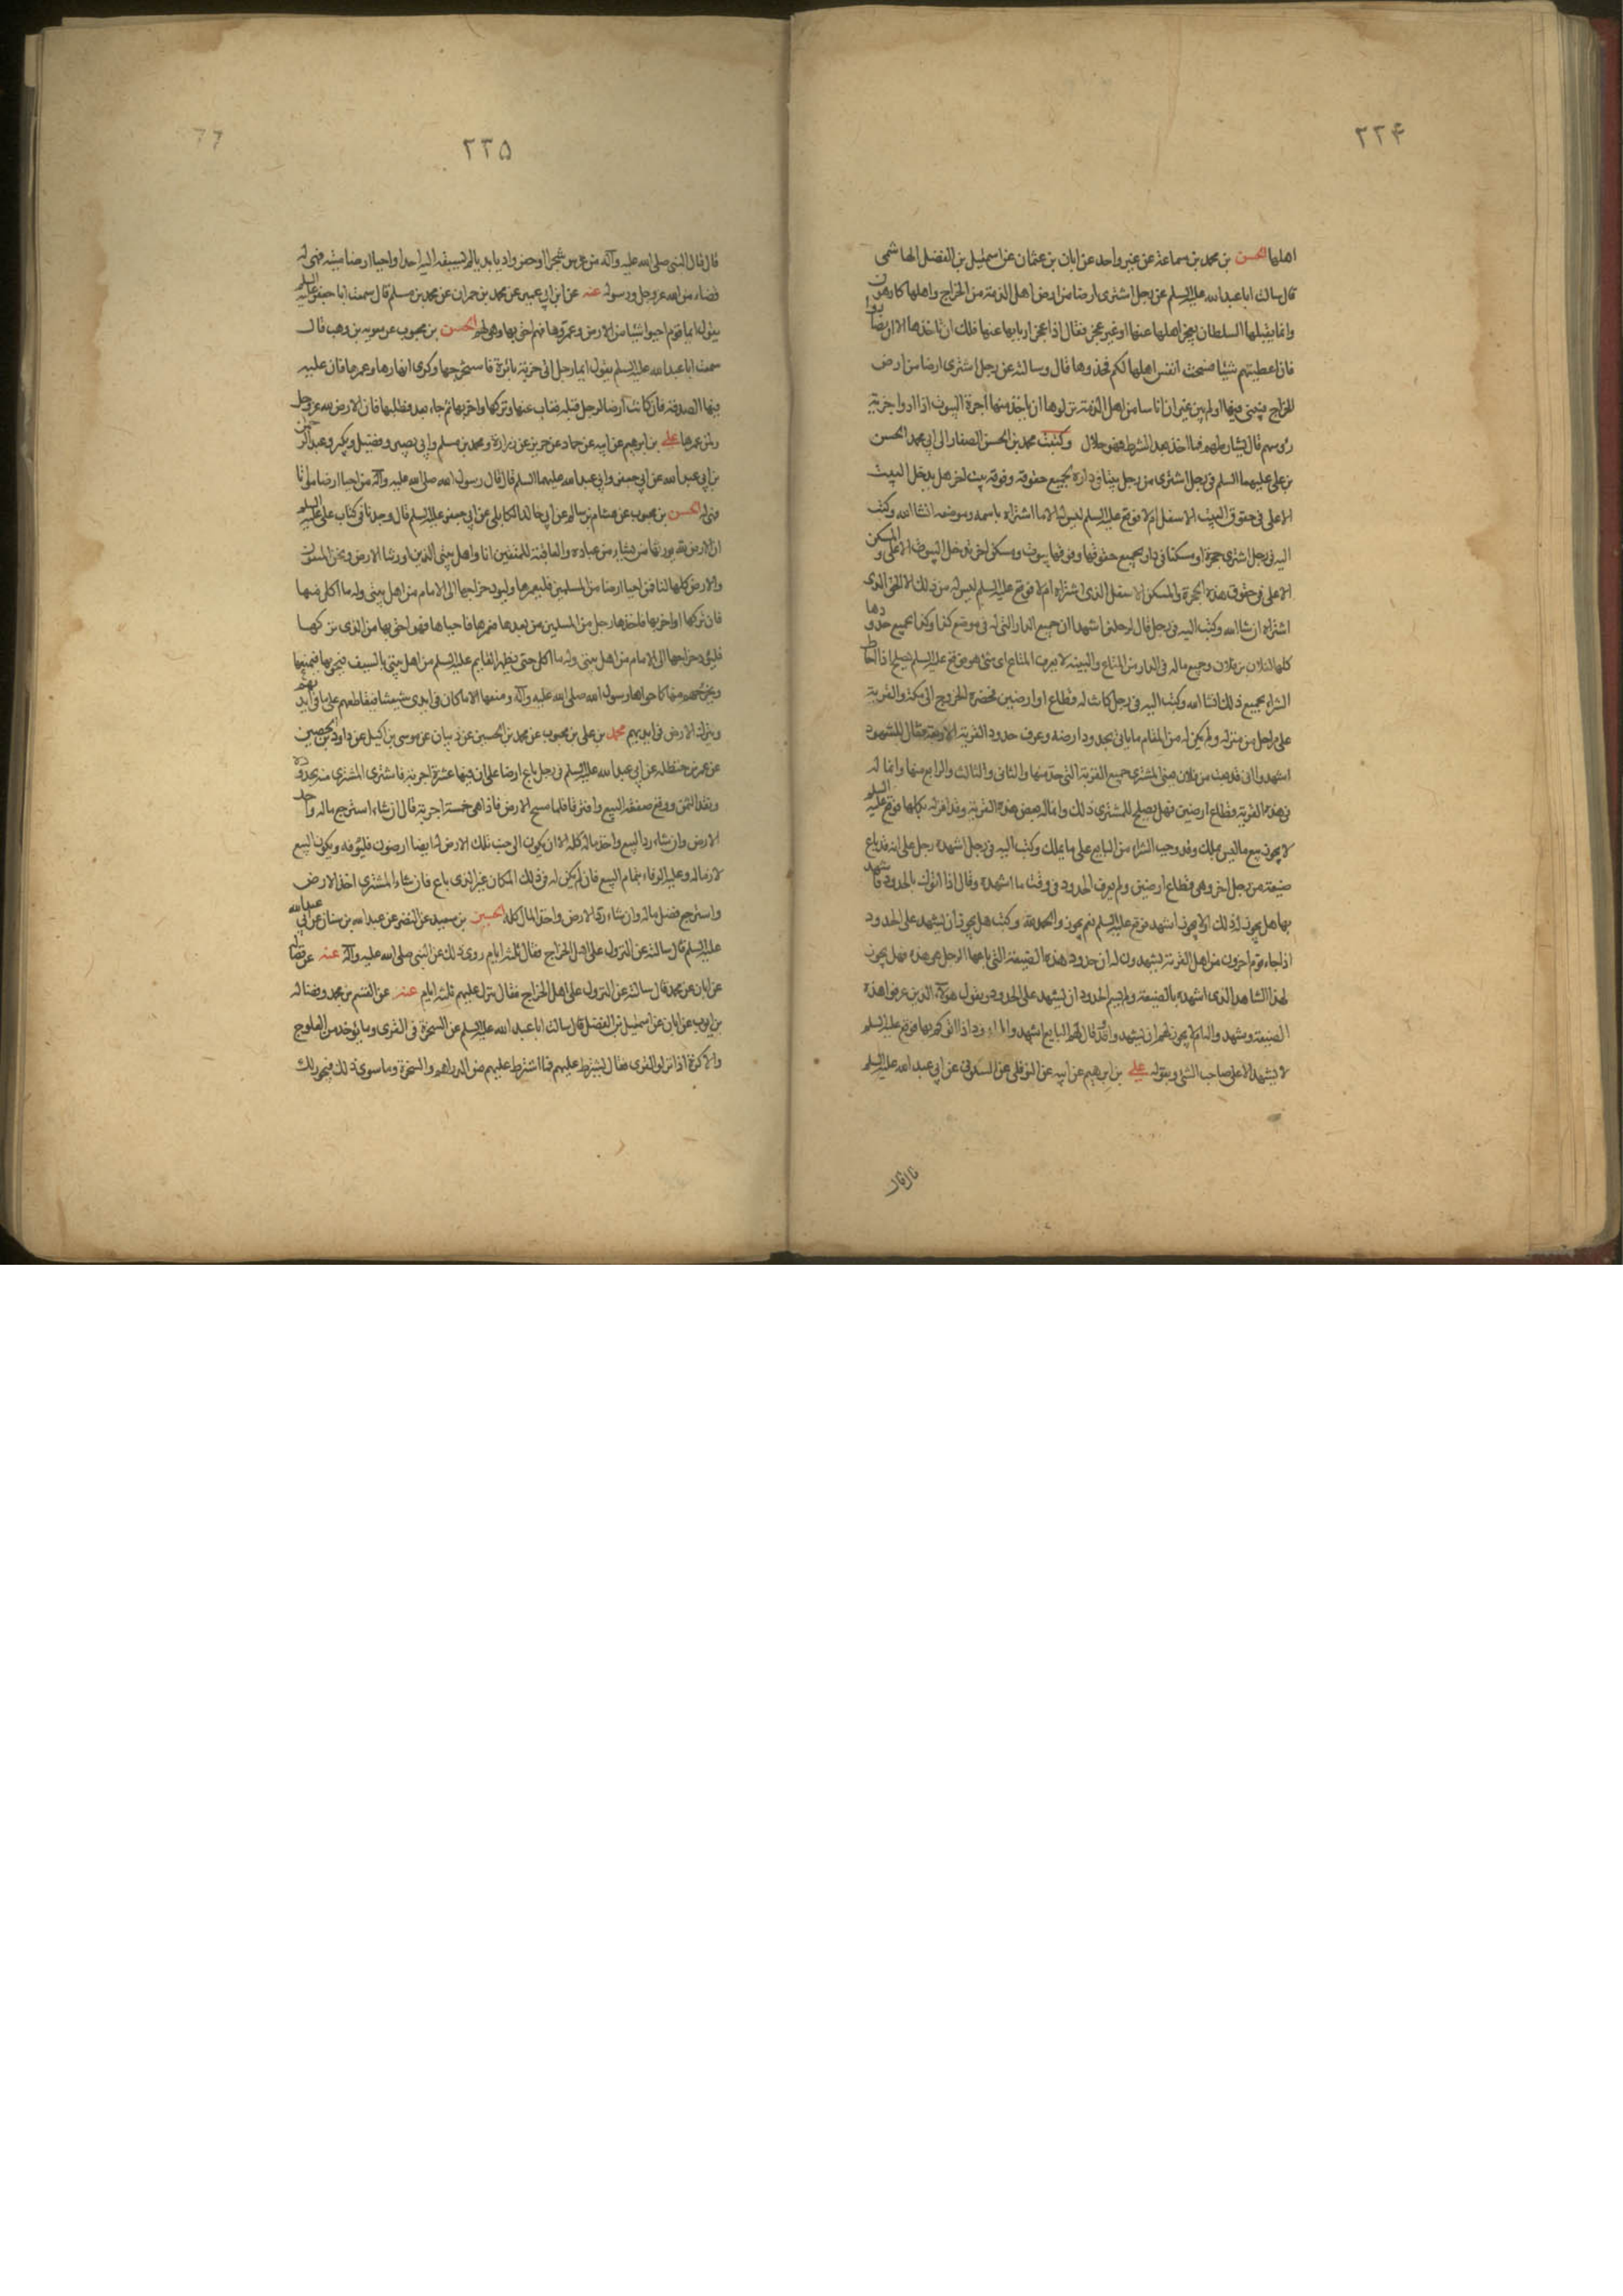 ٢٢۴
اهلها الحسن بن محمد بن سماعة عن غير واحد عن ابان بن عثمان عن اسمعيل بن الفضل الهاشمى
قال سالت ابا عبد الله عليه السلم عن رجل اشترى ارضا من ارض اهل الذمة من الخراج واهلها كارهون
وانما يقبلها السلطان بعجز اهلها عنها او غير عجز فقال اذا عجز اربابها عنها فلك ان تاخذها الا ان يضاروا
فان اعطيتهم شيئا فسخت انفس اهلها لكم فخذوها قال وسالته عن رجل اشترى ارضا من ارض
الخراج فبنى فيها او لم يبن غير ان اناسا من اهل الذمة نزلوها له ان ياخذ منها اجرة البيوت اذا ادوا جزية
رؤسهم قال يشارطهم فما اخذ بعد الشرط فهو حلال وكتبت محمد بن الحسن الصفار الى ابى محمد الحسن
بن على عليهما السلم فى رجل اشترى من رجل بيتا فى داره بجميع حقوقه وفوقه بيت اخر هل يدخل البيت
الاعلى فى حقوق البيت الاسفل ام لا فوقع عليه السلم ليس له الا ما اشتراه باسمه وموضعه انشا الله وكتب
اليه فى رجل اشترى حجرة او مسكنا فى دار بجميع حقوقها وفوقها بيوت ومسكن اخر يدخل البيوت الاعلى والمسكن
الاعلى فى حقوق هذه الحجرة والمسكن الاسفل الذى اشتراه ام لا فوقع عليه السلم ليس له من ذلك الا الحق الذى
اشتراه ان شا الله وكتب اليه فى رجل قال لرجلين اشهدا ان جميع الدار التى له فى موضع كذا وكذا بجميع حدودها
كلها لفلان بن فلان وجميع ماله فى الدار من المتاع والبينة لا يعرف المتاع اى شئ هو فوقع عليه السلم يصلح اذا احاط
الشراء بجميع ذلك انشا الله وكتب اليه فى رجل كانت له قطاع ارضين فحضره الخروج الى مكة والقرية
على مراحل من منزله ولم يكن له من المقام ما ياتى بحدود ارضه وعرف حدود القرية الاربعة فقال للشهود
اشهدوا انى قد بعت من فلان يعنى المشترى جميع القرية التى حد منها والثانى والثالث والرابع منها وانما له
فى هذه القرية قطاع ارضين فهل يصلح للمشترى ذلك وانما له بعض هذه القرية وقد اقر له بكلها فوقع عليه السلم
لا يجوز بيع ما ليس يملك وقد وجب الشراء من البايع على ما يملك وكتب اليه فى رجل اشهده رجل على انه قد باع
ضيعة من رجل اخر وهى قطاع ارضين ولم يعرف الحدود فى وقت ما اشهده وقال اذا اتوك بالحدود فاشهد
بها هل يجوز له ذلك او لا يجوز ان يشهد فوقع عليه السلم نعم يجوز والحمد لله وكتب هل يجوز ان يشهد على الحدود
اذا جاء قوم اخرون من اهل القرية يشهدون له ان حدود هذه الضيعة التى باعها الرجل هى هذه فهل يجوز
لهذا الشاهد الذى اشهده بالضيعة ولم يسم الحدود ان يشهد على الحدود بقول هؤلاء الذين عرفوا هذه
الضيعة وشهدوا له ام لا يجوز لهم ان يشهدوا وقد قال لهم البايع اشهدوا اذا اتوكم بها فوقع عليه السلم
لا يشهد الا على صاحب الشئ وبقوله على بن ابرهيم عن ابيه عن النوفلى عن السكونى عن ابى عبد الله عليه السلم
قال قال
٢٢۵
قال قال النبى صلى الله عليه وآله من غرس شجرا او حفر واديا بديا لم يسبقه اليه احد او احيا ارضا ميتة فهى له
قضاء من الله عز وجل ورسوله عنه عن ابن ابى عمير عن محمد بن حمران عن محمد بن مسلم قال سمعت ابا جعفر عليه السلم
يقول ايما قوم احيوا شيئا من الارض وعمروها فهم احق بها وهى لهم الحسن بن محبوب عن معويه بن وهب قال
سمعت ابا عبد الله عليه السلم يقول ايما رجل اتى خربة بائرة فاستخرجها وكرى انهارها وعمرها فان عليه
فيها الصدقة فان كانت ارضا لرجل قبله فغاب عنها وتركها واخربها ثم جاء بعد فطلبها فان الارض لله عز وجل
ولمن عمرها على بن ابرهيم عن ابيه عن حماد عن حريز عن زرارة ومحمد بن مسلم وابى بصير وفضيل وبكير وحمران وعبد الرحمن
بن ابى عبد الله عن ابى جعفر وابى عبد الله عليهما السلم قال قال رسول الله صلى الله عليه وآله من احيا ارضا مواتا
فهى له الحسن بن محبوب عن هشام بن سالم عن ابى خالد الكابلى عن ابى جعفر عليه السلم قال وجدنا فى كتاب على عليه السلم
ان الارض لله يورثها من يشاء من عباده والعاقبة للمتقين انا واهل بيتى الذين اورثنا الارض ونحن المتقون
والارض كلها لنا فمن احيا ارضا من المسلمين فليعمرها وليود خراجها الى الامام من اهل بيتى وله ما اكل منها
فان تركها او اخربها فاخذها رجل من المسلمين من بعده فعمرها واحياها فهو احق بها من الذى تركها
فليود خراجها الى الامام من اهل بيتى وله ما اكل حتى يظهر القايم عليه السلم من اهل بيتى بالسيف فيحويها فيمنعها
ويخرجهم منها كما حواها رسول الله صلى الله عليه وآله ومنعها الا ما كان فى ايدى شيعتنا فيقاطعهم على ما فى ايديهم
ويترك الارض فى ايديهم محمد بن على بن محبوب عن محمد بن الحسين عن ذبيان عن موسى بن اكيل عن داود بن الحصين
عن عمر بن حنظله عن ابى عبد الله عليه السلم فى رجل باع ارضا على ان فيها عشرة اجربة فاشترى المشترى منه بحدوده
ونقد الثمن ووقع صفقة البيع وافترقا فلما مسح الارض فاذا هى خمسة اجربة قال ان شاء استرجع ماله واخذ
الارض وان شاء رد البيع واخذ ماله كله الا ان يكون الى جنب تلك الارض له ايضا ارضون فليوفه ويكون البيع
لازما له وعليه الوفاء بتمام البيع فان لم يكن له فى ذلك المكان غير الذى باع فان شاء المشترى اخذ الارض
واسترجع فضل ماله وان شاء رد الارض واخذ المال كله الحسين بن سعيد عن النضر عن عبد الله بن سنان عن ابى عبد الله
عليه السلم قال سالته عن النزول على اهل الخراج فقال ثلثة ايام روى ذلك عن النبى صلى الله عليه وآله عنه عن فضالة
عن ابان عن محمد قال سالته عن النزول على اهل الخراج فقال ينزل عليهم ثلثة ايام عنه عن القسم بن محمد وفضاله
بن ايوب عن ابان عن اسمعيل بن الفضل قال سالت ابا عبد الله عليه السلم عن السخرة فى القرى وما يؤخذ من العلوج
والاكرة اذا نزلوا القرى فقال يشترط عليهم فما اشترط عليهم من الدراهم والسخرة وما سوى ذلك فيجوز لك